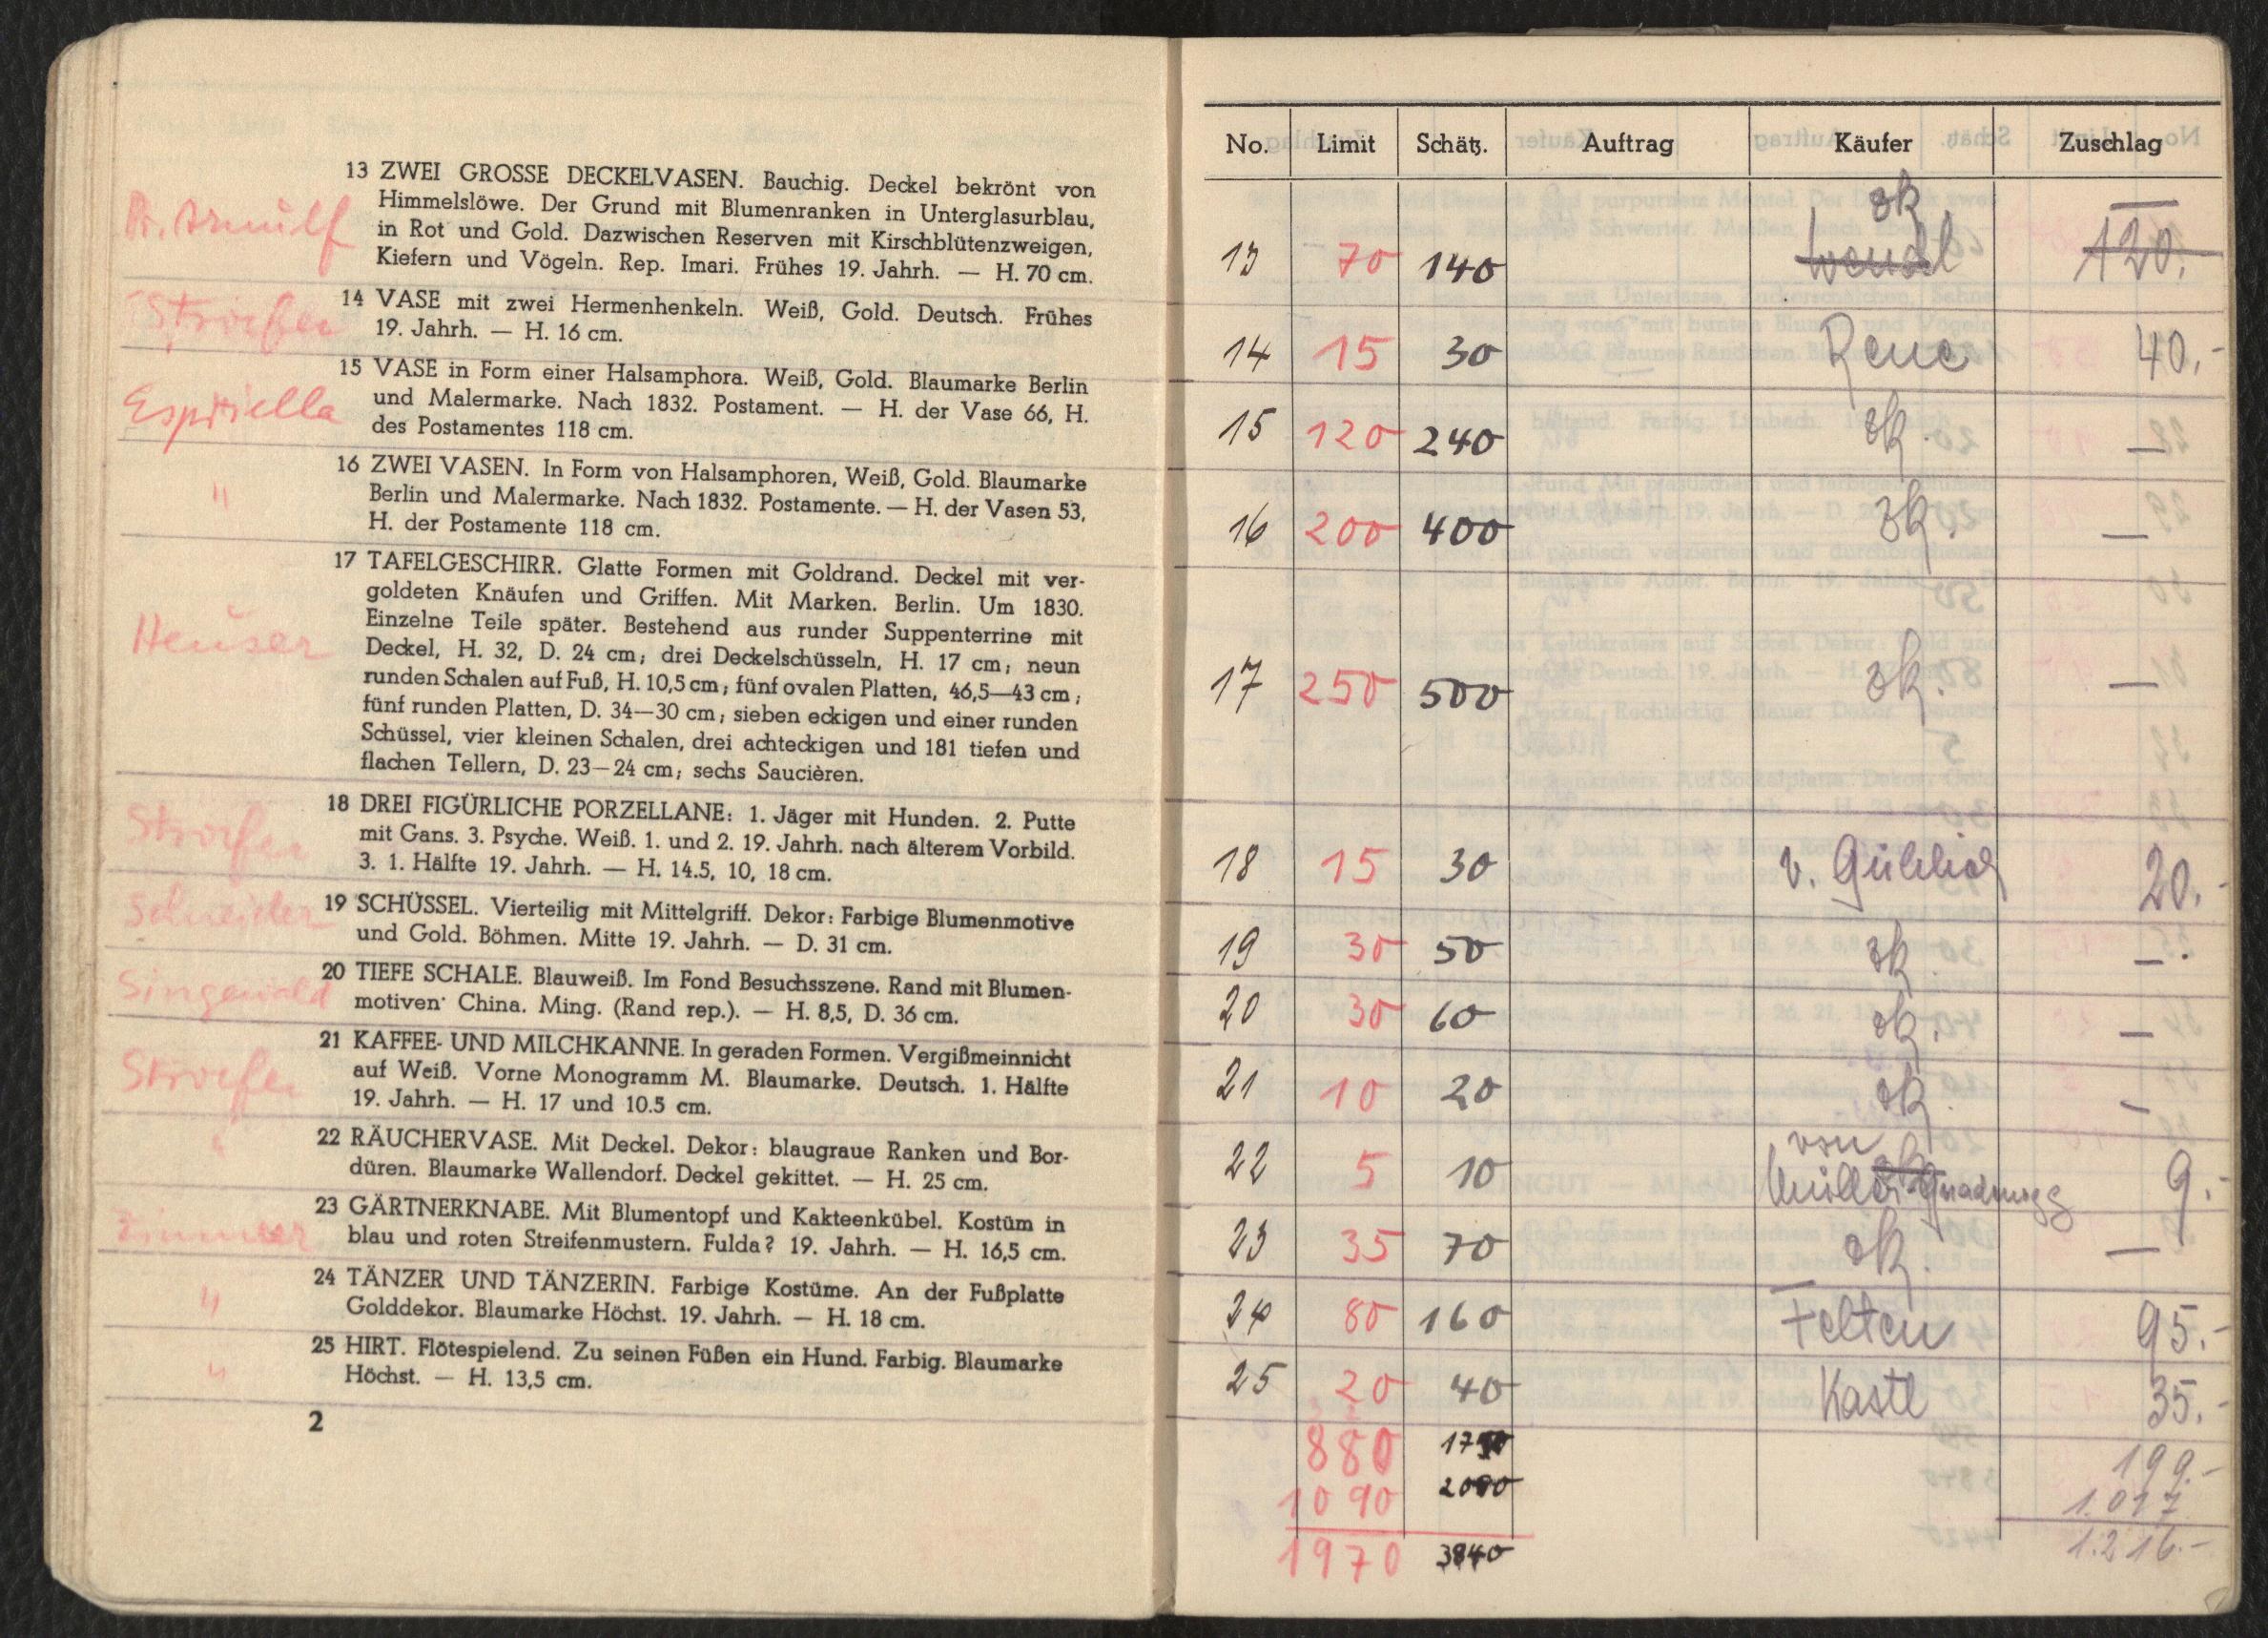 13 ZWEI GROSSE DECKELVASEN. Bauchig. Deckel bekrönt von
Himmelslöwe. Der Grund mit Blumenranken in Unterglasurblau,
in Rot und Gold. Dazwischen Reserven mit Kirschblütenzweigen,
Kiefern und Vögeln. Rep. Imari. Frühes 19. Jahrh. — H. 70 cm.
Pr. Arnulf
14 VASE mit zwei Hermenhenkeln. Weiß, Gold. Deutsch. Frühes
19. Jahrh. — H. 16 cm.
Stroefer
15 VASE in Form einer Halsamphora. Weiß, Gold. Blaumarke Berlin
und Malermarke. Nach 1832. Postament. — H. der Vase 66, H.
des Postamentes 118 cm.
Espiriella
16 ZWEI VASEN. In Form von Halsamphoren, Weiß, Gold. Blaumarke
Berlin und Malermarke. Nach 1832. Postamente. — H. der Vasen 53,
H. der Postamente 118 cm.
"
17 TAFELGESCHIRR. Glatte Formen mit Goldrand. Deckel mit ver-
goldeten Knäufen und Griffen. Mit Marken. Berlin. Um 1830.
Einzelne Teile später. Bestehend aus runder Suppenterrine mit
Deckel, H. 32, D. 24 cm; drei Deckelschüsseln, H. 17 cm; neun
runden Schalen auf Fuß, H. 10,5 cm; fünf ovalen Platten, 46,5—43 cm;
fünf runden Platten, D. 34—30 cm; sieben eckigen und einer runden
Schüssel, vier kleinen Schalen, drei achteckigen und 181 tiefen und
flachen Tellern, D. 23—24 cm; sechs Saucièren.
Heuser
18 DREI FIGÜRLICHE PORZELLANE: 1. Jäger mit Hunden. 2. Putte
mit Gans. 3. Psyche. Weiß. 1. und 2. 19. Jahrh. nach älterem Vorbild.
3. 1. Hälfte 19. Jahrh. — H. 14.5, 10, 18 cm.
Stroefer
19 SCHÜSSEL. Vierteilig mit Mittelgriff. Dekor: Farbige Blumenmotive
und Gold. Böhmen. Mitte 19. Jahrh. — D. 31 cm.
Schneider
20 TIEFE SCHALE. Blauweiß. Im Fond Besuchsszene. Rand mit Blumen-
motiven· China. Ming. (Rand rep.). — H. 8,5, D. 36 cm.
Singewald
21 KAFFEE- UND MILCHKANNE. In geraden Formen. Vergißmeinnicht
auf Weiß. Vorne Monogramm M. Blaumarke. Deutsch. 1. Hälfte
19. Jahrh. — H. 17 und 10.5 cm.
Stroefer
22 RÄUCHERVASE. Mit Deckel. Dekor: blaugraue Ranken und Bor-
düren. Blaumarke Wallendorf. Deckel gekittet. — H. 25 cm.
"
23 GÄRTNERKNABE. Mit Blumentopf und Kakteenkübel. Kostüm in
blau und roten Streifenmustern. Fulda? 19. Jahrh. — H. 16,5 cm.
Zimmer
24 TÄNZER UND TÄNZERIN. Farbige Kostüme. An der Fußplatte
Golddekor. Blaumarke Höchst. 19. Jahrh. — H. 18 cm.
"
25 HIRT. Flötespielend. Zu seinen Füßen ein Hund. Farbig. Blaumarke
Höchst. — H. 13,5 cm.
"
2
No. Limit Schätz. Auftrag Käufer Zuschlag
zk —
13 70 140 Wendl 120.
14 15 30 Rene 40.-
15 120 240 zk. —
16 200 400 zk. —
17 250 500 zk. —
18 15 30 v. 20.-
19 30 50 zk. —.
20 30 60 zk. —
21 10 20 zk. —
von
22 5 10 Müller 9.-
23 35 70 zk. —
24 80 160 Felten 95.-
25 20 40 Kastl 35.-
880 199.-
1090 1.017
1970 3840 1.216.-